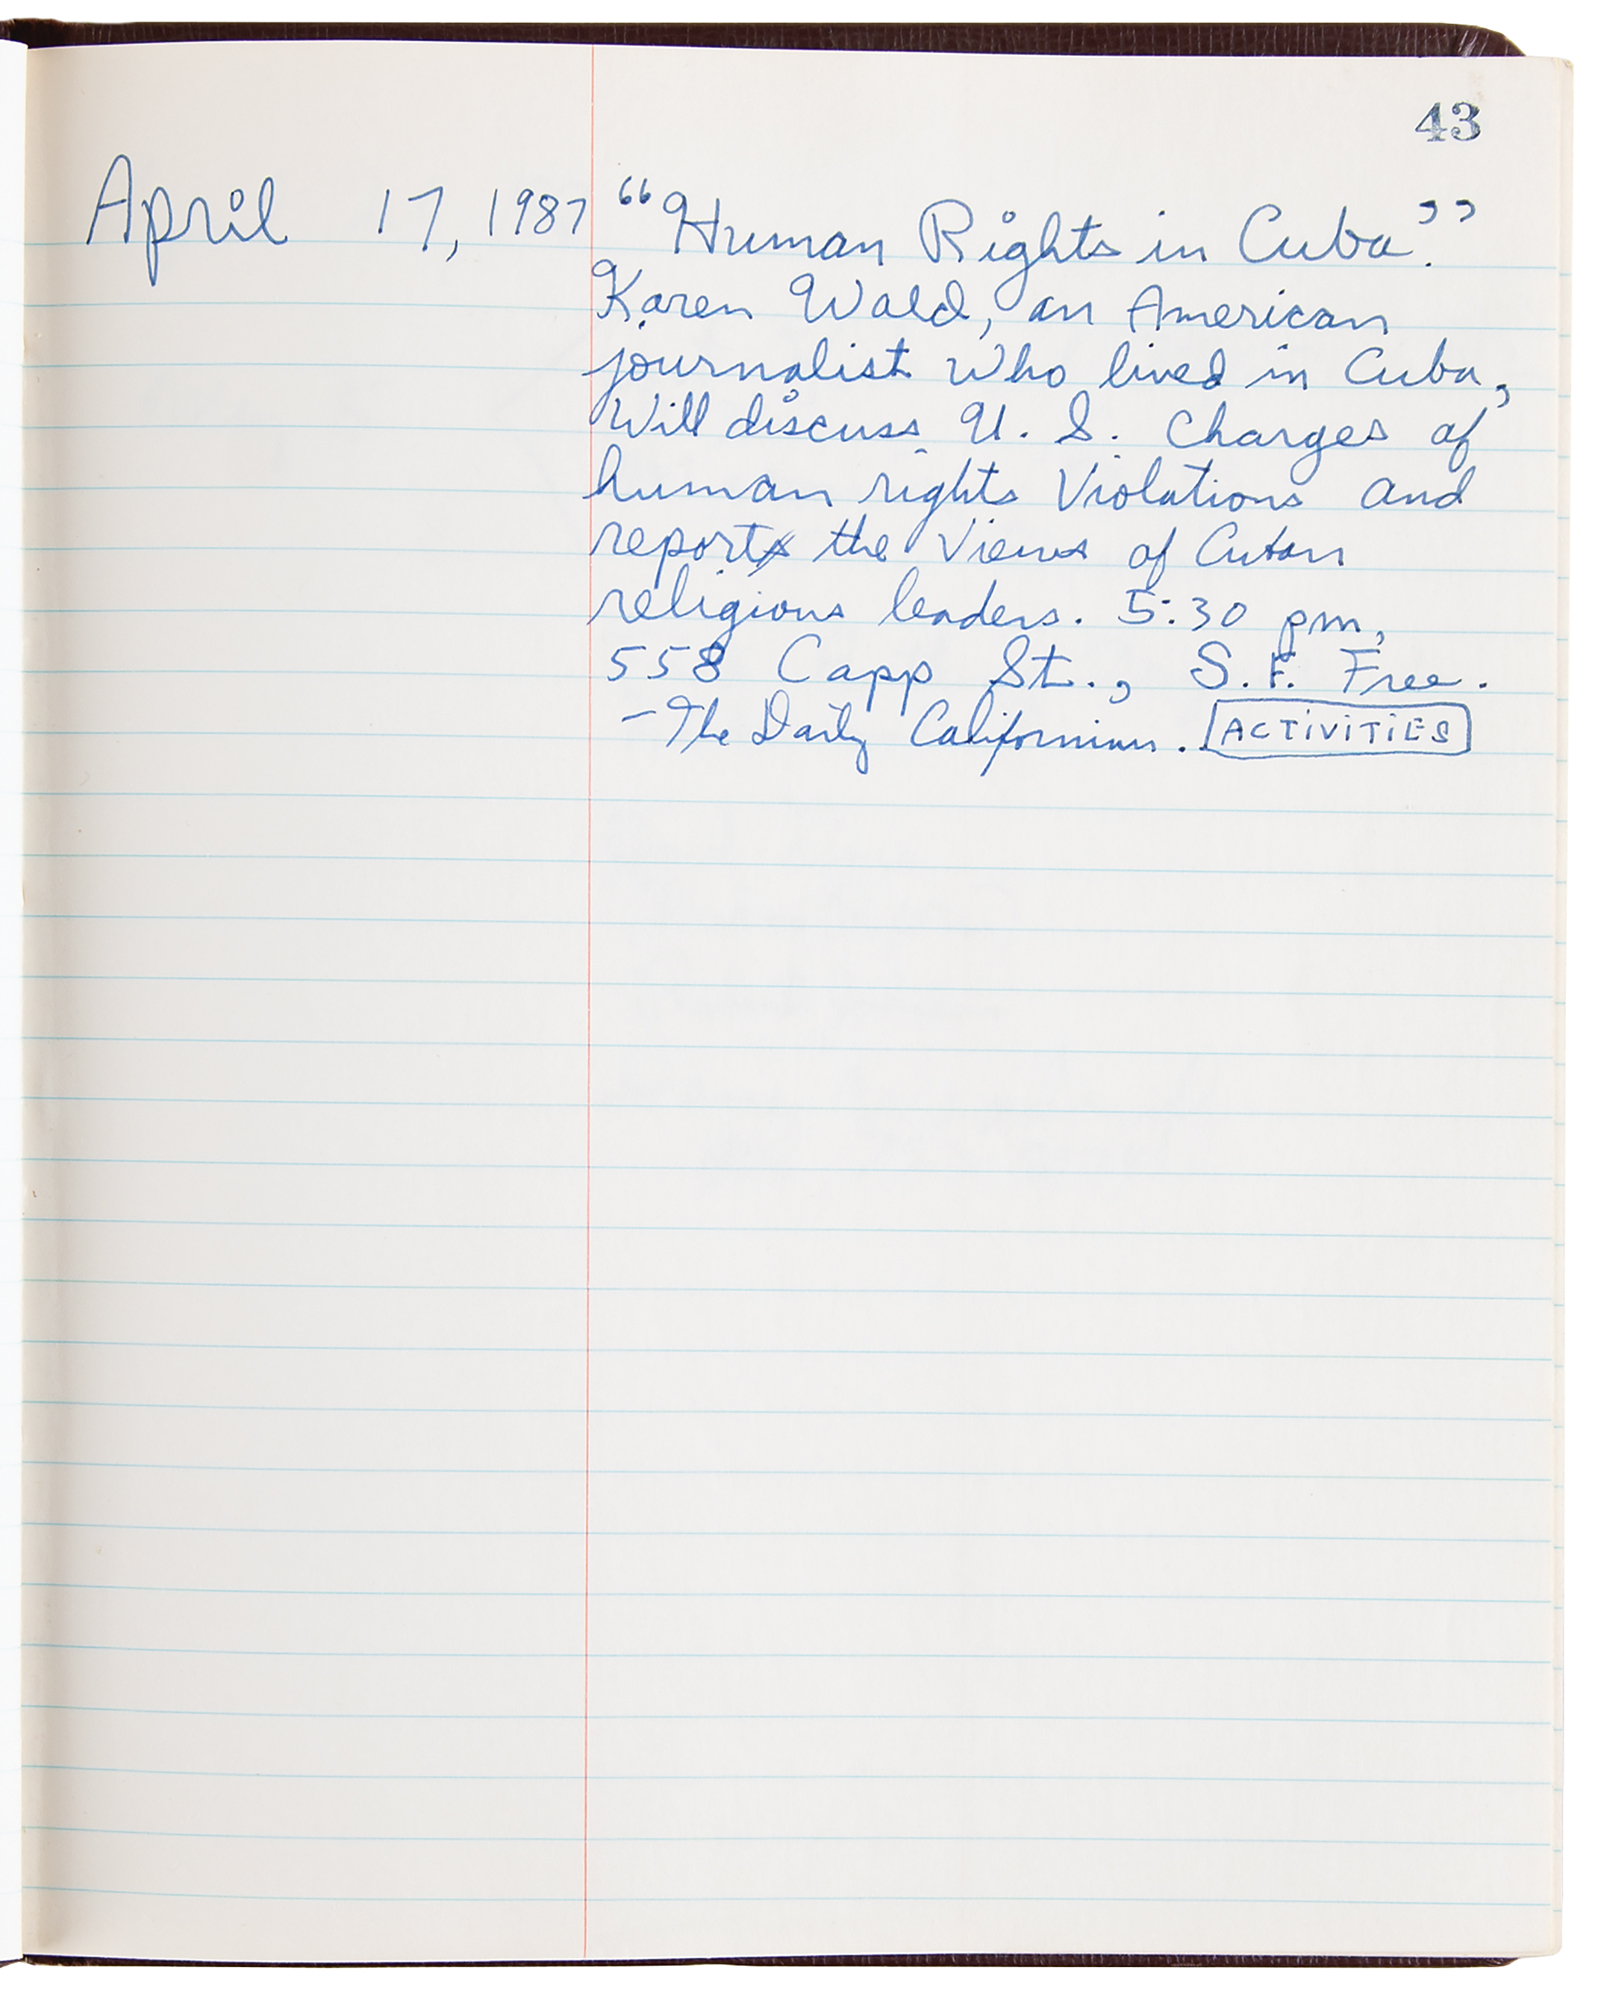 43
April 17, 1987 "Human Rights in Cuba."
Karen Wald, an American
journalist who lived in Cuba,
will discuss U. S. charges of
human rights violations and
report the views of Cuban
religious leaders. 5:30 pm,
558 Capp St., S.F. Free.
- The Daily Californian. ACTIVITIES